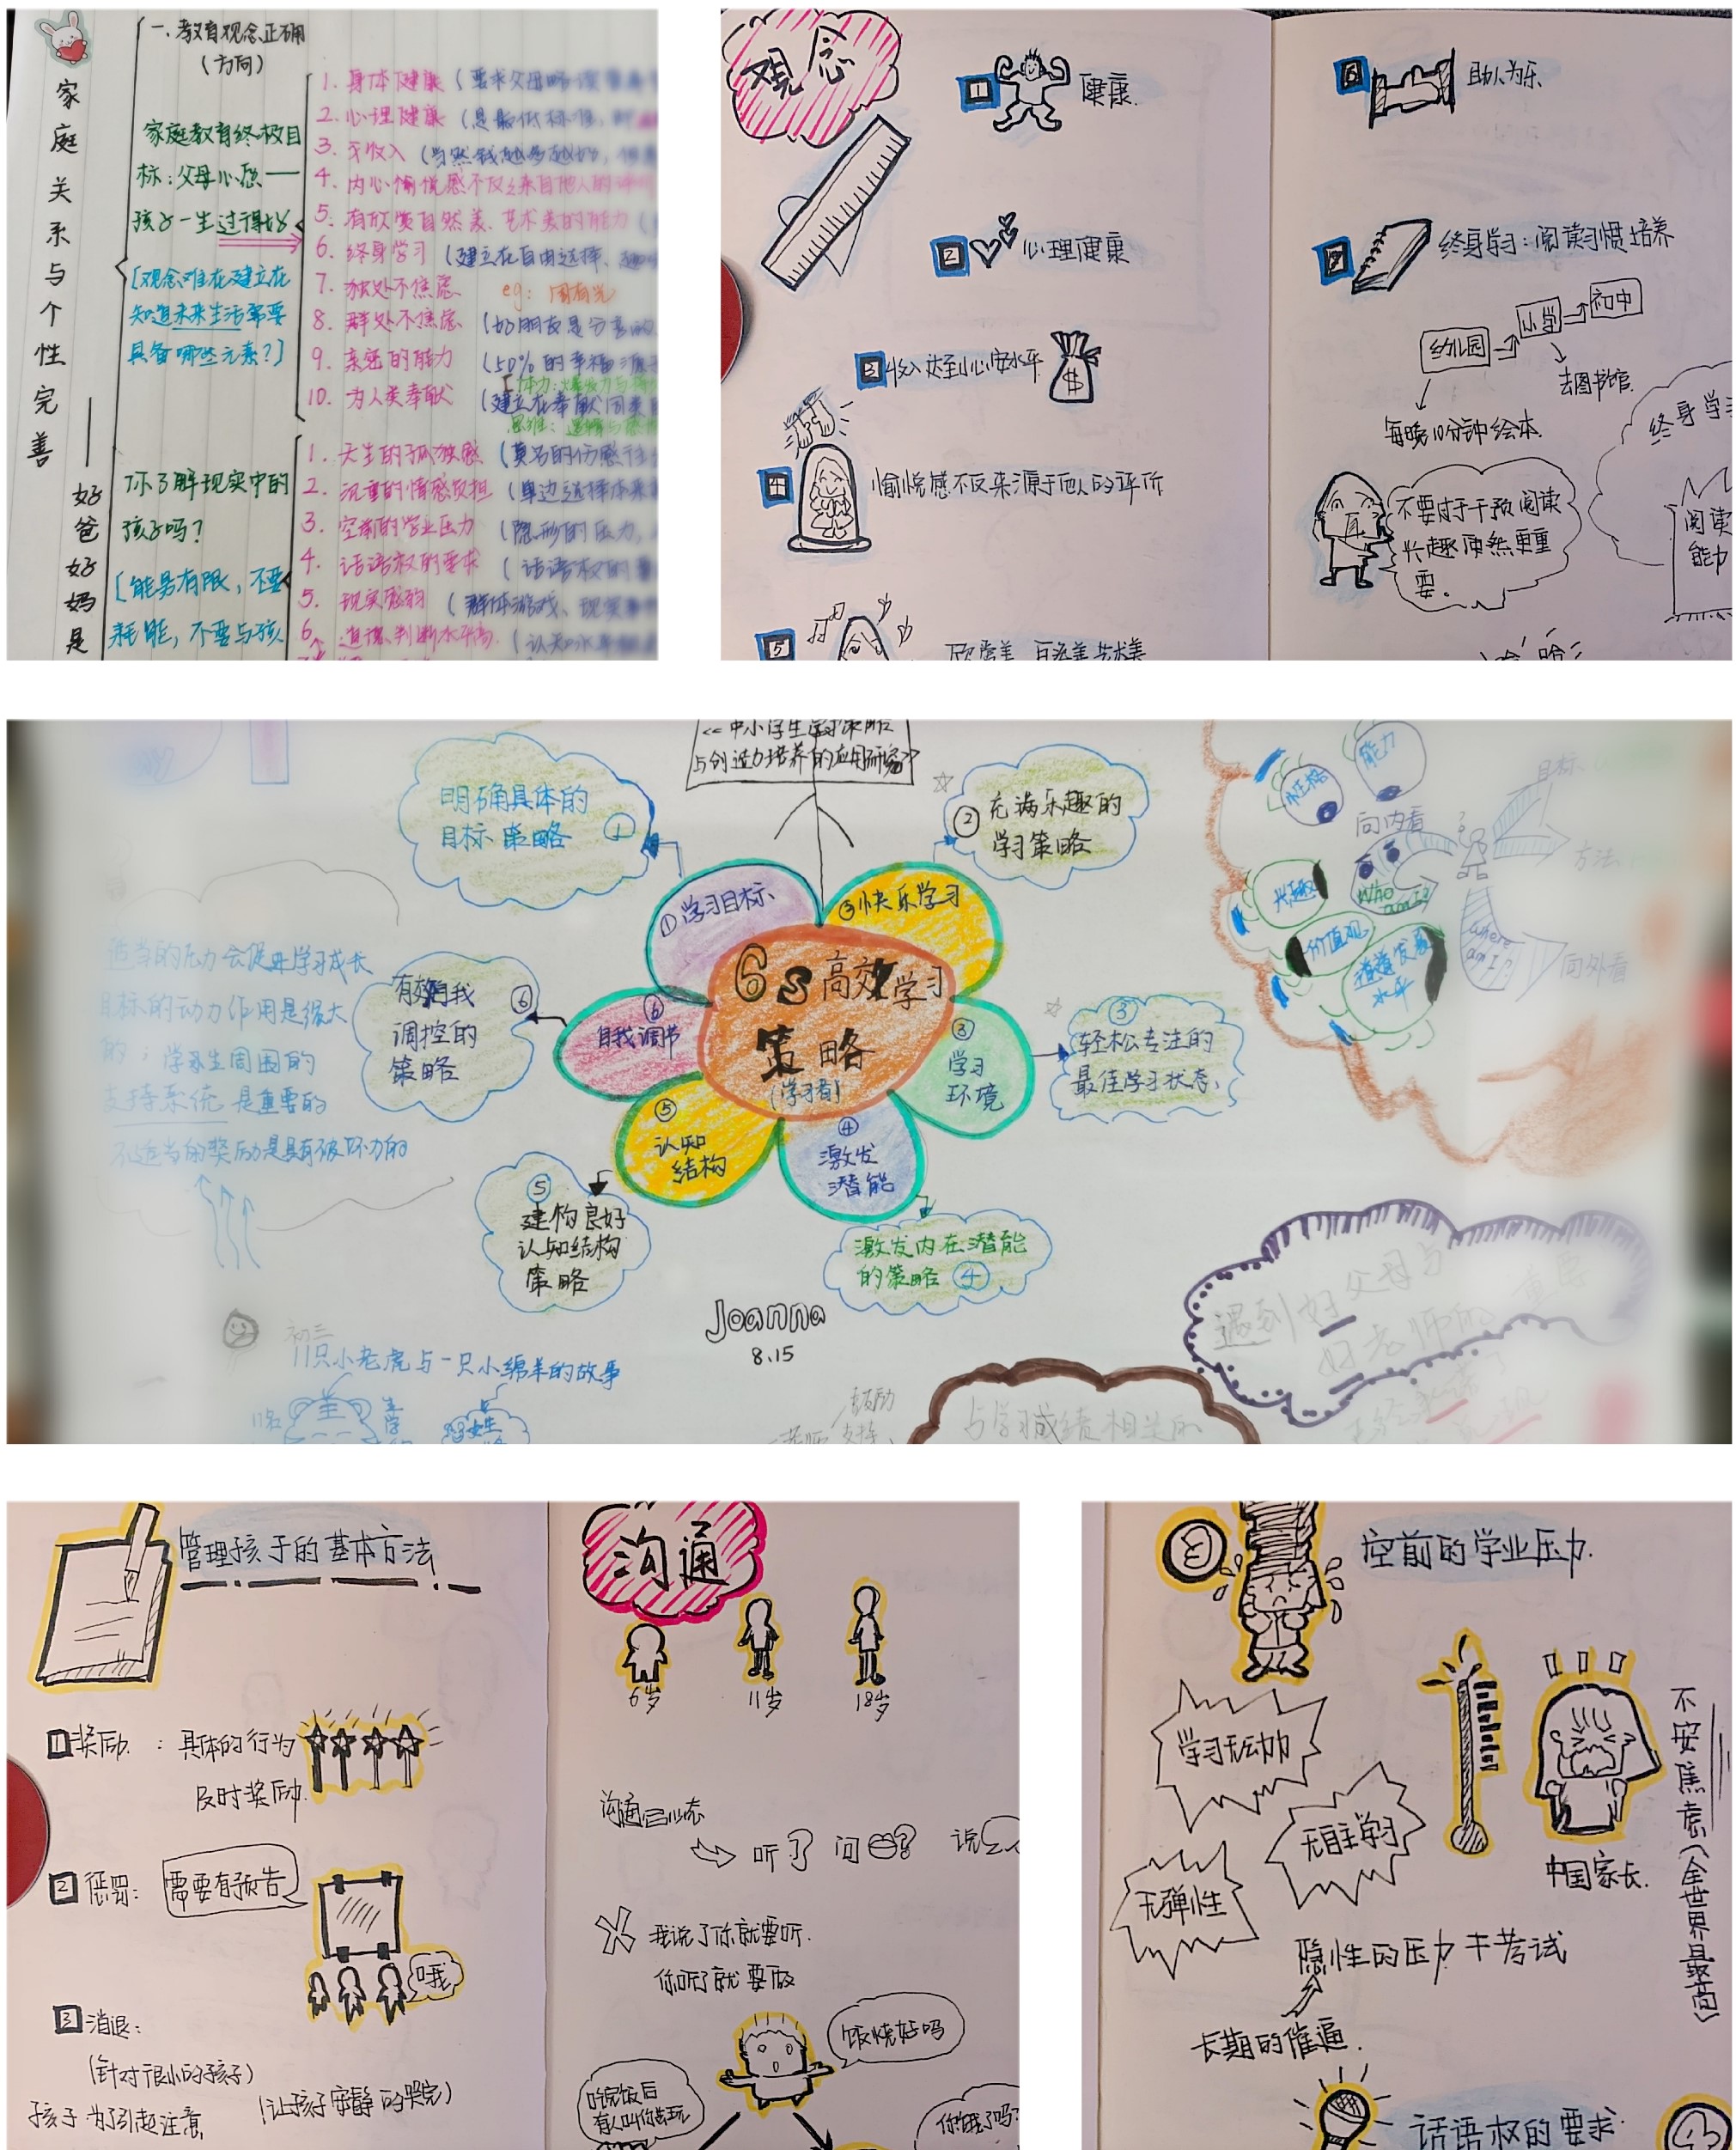 家庭关系与个性完善——好爸好妈是
一.教育观念正确
(方向)
家庭教育终极目
标:父母心愿——
孩子一生过得好
[观念难在建立在
知道未来生活需要
具备哪些元素?]
1. 身体健康(要求父母略读
2. 心理健康(是最低标准,
3. 有收入(当然钱越多越好,
4. 内心愉悦感不仅仅来自他人的评
5. 有欣赏自然美、艺术美的能力(
6. 终身学习(建立在自由选择、
7. 独处不焦虑 eg: 周有光
8. 群处不焦虑(好朋友是分享的
9. 亲密的能力(50%的幸福源
10. 为人类奉献(建立在奉献同类
你了解现实中的
孩子吗?
[能量有限,不要
耗能,不要与孩
1. 天生的孤独感(莫名的伤感
2. 沉重的情感负担(单边选择
3. 空前的学业压力(隐形的压力,
4. 话语权的要求(话语权的
5. 现实感弱(群体游戏、现实
6. 道德判断水平高(认知水平
观念
1 健康
2 心理健康
3 收入达到小心安水平
$
4 愉悦感不仅来源于他人的评价
5 欣赏美 自然美 艺术美
6 助人为乐
终身学习:阅读习惯培养
幼儿园
小学
初中
去图书馆
每晚10分钟绘本
不要过于干预阅读
兴趣更重
要.
终身学
阅读
能力
哈哈
<<中小学生学习策略
与创造力培养的应用研究>>
明确具体的
目标策略 ①
② 充满乐趣的
学习策略
①学习目标
②快乐学习
6s高效学习
策略
(学习者)
③
学习
环境
③
轻松专注的
最佳学习状态
④
激发
潜能
激发内在潜能
的策略 ④
⑤
认知
结构
⑤
建构良好
认知结构
策略
⑥
自我调节
有效自我 ⑥
调控的
策略
适当的压力会促进学习成长
目标的动力作用是很大
的;学习生周围的
支持系统是重要的
不适当的奖励是具有破坏力的
性格
能力
向内看
兴趣
价值观
道德发展
水平
Who
am I?
where
am I?
目标
方法
向外看
Joanna
8.15
初三
11只小老虎与一只小绵羊的故事
11名
女生
鼓励
老师 支持
与学习成绩相关的
遇到好父母与
好老师的重
管理孩子的基本方法
1 奖励:具体的行为
及时奖励
2 惩罚:需要有预告
哦
3 消退:
(针对很小的孩子)
孩子为了引起注意
(让孩子安静的哭完)
沟通
6岁
11岁
18岁
沟通心态
听 问 说
我说了你就要听
你听了就要做
饭烧好吗
吃完饭后
有人叫你去玩
你饿了吗?
3
空前的学业压力
学习无动力
无自主学习
无弹性
中国家长
不安焦虑(全世界最高)
隐性的压力 考试
长期的催逼
话语权的要求